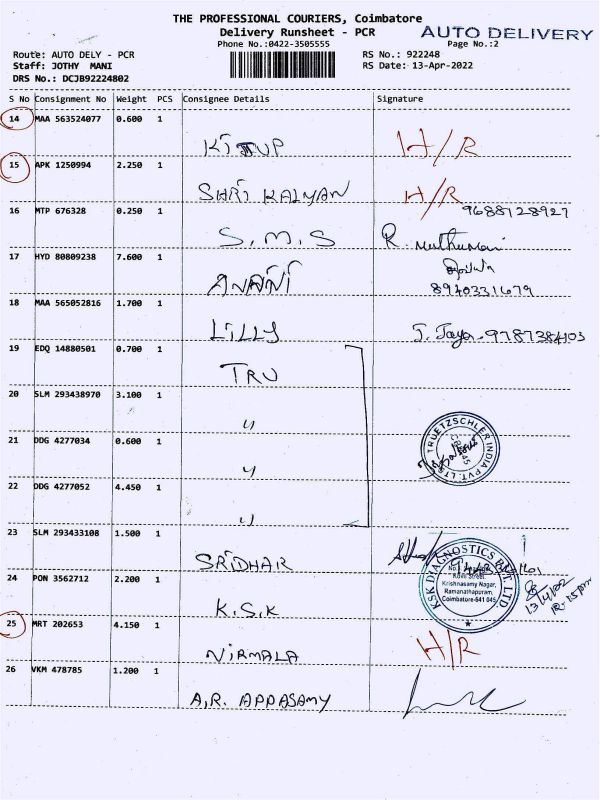 THE PROFESSIONAL COURIERS, Coimbatore
Delivery Runsheet - PCR
AUTO DELIVERY
Phone No.:0422-3505555
Page No.:2
Route: AUTO DELY - PCR
RS No.: 922248
Staff: JOTHY MANI
RS Date: 13-Apr-2022
DRS No.: DCJB92224802
S No Consignment No Weight PCS Consignee Details Signature
14 MAA 563524077 0.600 1
H/R
15 APK 1250994 2.250 1
SHRI KALYAN H/R
9688728927
16 MTP 676328 0.250 1
S.M.S R
17 HYD 80809238 7.600 1
8940331679
18 MAA 565052816 1.700 1
LILLY J. Jaya-9787384103
19 EDQ 14880501 0.700 1
TRU
20 SLM 293438970 3.100 1
"
21 DDG 4277034 0.600 1
"
TRUETZSCHLER INDIA PVT. LTD
22 DDG 4277052 4.450 1
"
23 SLM 293433108 1.500 1
SRIDHAR
24 PON 3562712 2.200 1
K.S.K
KSK DIAGNOSTICS PVT. LTD
Krishnasamy Nagar,
Ramanathapuram,
Coimbatore-641 045
13/4/22
12-15pm
25 MRT 202653 4.150 1
NIRMALA H/R
26 VKM 478785 1.200 1
A.R. APPASAMY